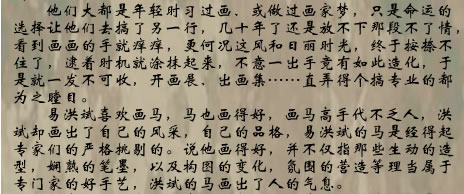 他们大都是年轻时习过画、或做过画家梦，只是命运的
选择让他们去搞了另一行，几十年了还是放不下那段不了情，
看到画画的手就痒痒，更何况这风和日丽时光，终于按捺不
住了，逮着时机就涂抹起来，不意一出手竟有如此造化，于
是就一发不可收，开画展、出画集……直弄得个搞专业的都
为之瞠目。
易洪斌喜欢画马，马也画得好，画马高手代不乏人，洪
斌却画出了自己的风采，自己的品格，易洪斌的马是经得起
专家们的严格挑剔的。说他画得好，并不仅指那些生动的造
型，娴熟的笔墨，以及构图的变化，氛围的营造等理当属于
专门家的好手艺，洪斌的马画出了人的气息。